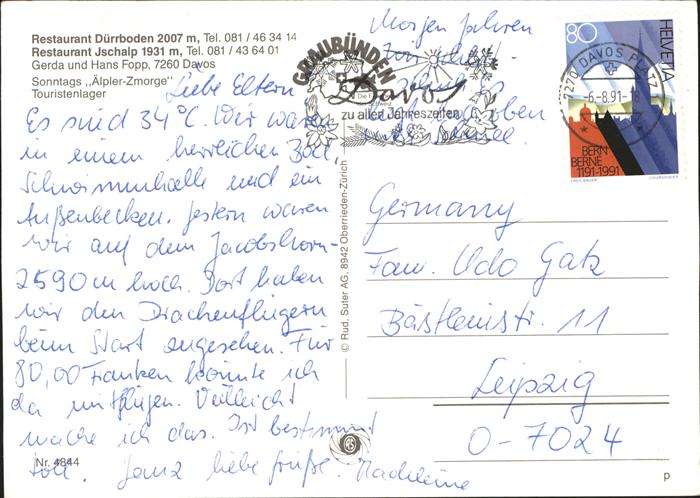 Restaurant Dürrboden 2007 m, Tel. 081 / 46 34 14
Restaurant Jschalp 1931 m, Tel. 081 / 43 64 01
Gerda und Hans Fopp, 7260 Davos
Sonntags „Älpler-Zmorge"
Touristenlager
Liebe Eltern
Es sind 34°C. Wir waren
in einem herrlichen Bad.
Schwimmhalle und ein
Außenbecken. Gestern waren
wir auf dem Jacobshorn-
2590 m hoch. Dort haben
wir den Drachenflügern
beim Start angesehen. Für
80,00 Franken könnte ich
da mitfliegen. Vielleicht
mache ich das. Ist bestimmt
toll. Ganz liebe Grüße. Madeleine
Nr. 4844
Morgen fahren
oben
GRAUBÜNDEN
Davos
zu allen Jahreszeiten
7270 DAVOS PL
-6.-8.91-
80
HELVETIA
BERN
BERNE
1191-1991
© Rud. Suter AG, 8942 Oberrieden-Zürich
Germany
Fam. Udo Gatz
Bästleinstr. 11
Leipzig
O-7024
p